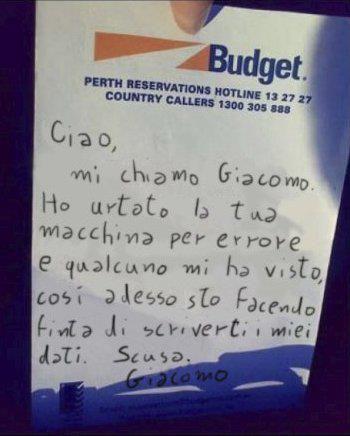 Budget.
PERTH RESERVATIONS HOTLINE 13 27 27
COUNTRY CALLERS 1300 305 888
Ciao,
mi chiamo Giacomo.
Ho urtato la tua
macchina per errore
e qualcuno mi ha visto,
così adesso sto facendo
finta di scriverti i miei
dati. Scusa.
Giacomo